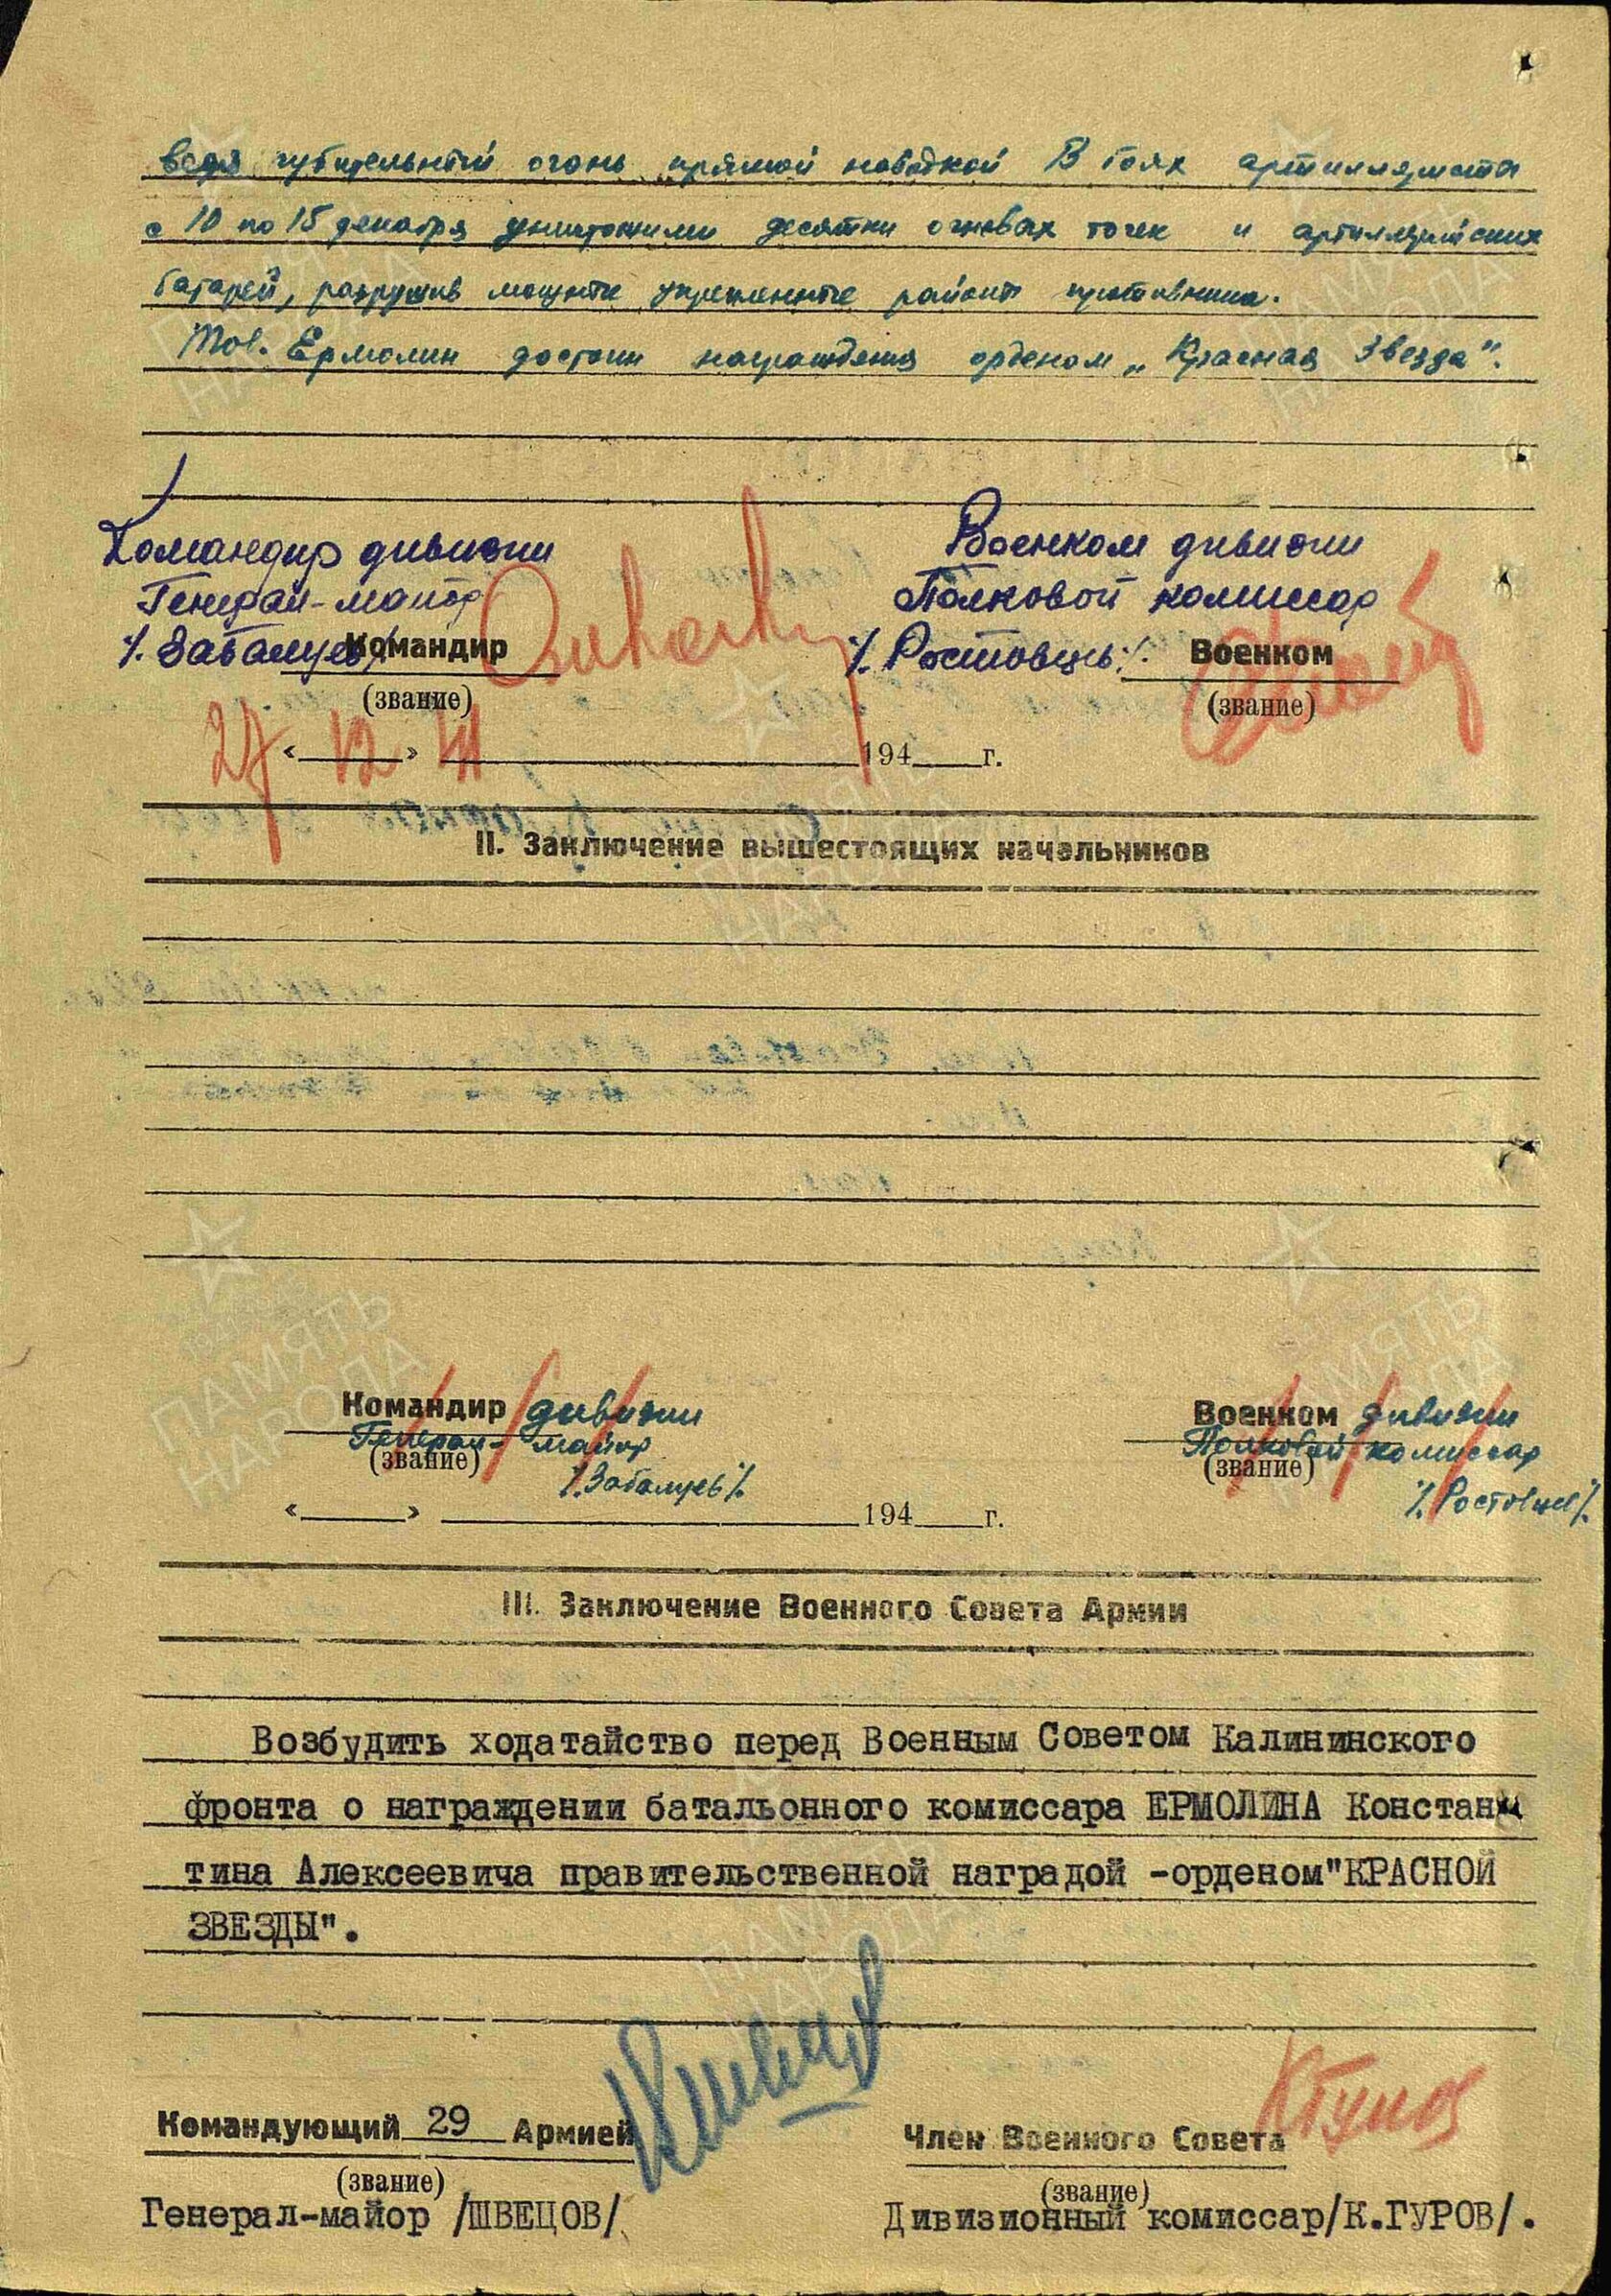 ведя губительный огонь прямой наводкой В боях артиллеристы
с 10 по 15 декабря уничтожили десятки огневых точек и артиллерийских
батарей, разрушив мощные укрепленные районы противника.
Тов. Ермолин достоин награждения орденом „Красная Звезда".
Командир дивизии
Генерал-майор
/. Забалуев/
Командир
(звание)
Военком дивизии
Полковой комиссар
/. Ростовцев /.
Военком
(звание)
27 12 41
« » 194 г.
II. Заключение вышестоящих начальников
Командир дивизии
Генерал-майор
(звание)
/. Забалуев /.
Военком дивизии
Полковой комиссар
(звание)
/. Ростовцев /.
« » 194 г.
III. Заключение Военного Совета Армии
Возбудить ходатайство перед Военным Советом Калининского
фронта о награждении батальонного комиссара ЕРМОЛИНА Констан
тина Алексеевича правительственной наградой -орденом"КРАСНОЙ
ЗВЕЗДЫ".
Командующий 29 Армией
(звание)
Генерал-майор /ШВЕЦОВ/
Член Военного Совета
(звание)
Дивизионный комиссар/К.ГУРОВ/.
ПАМЯТЬ
НАРОДА